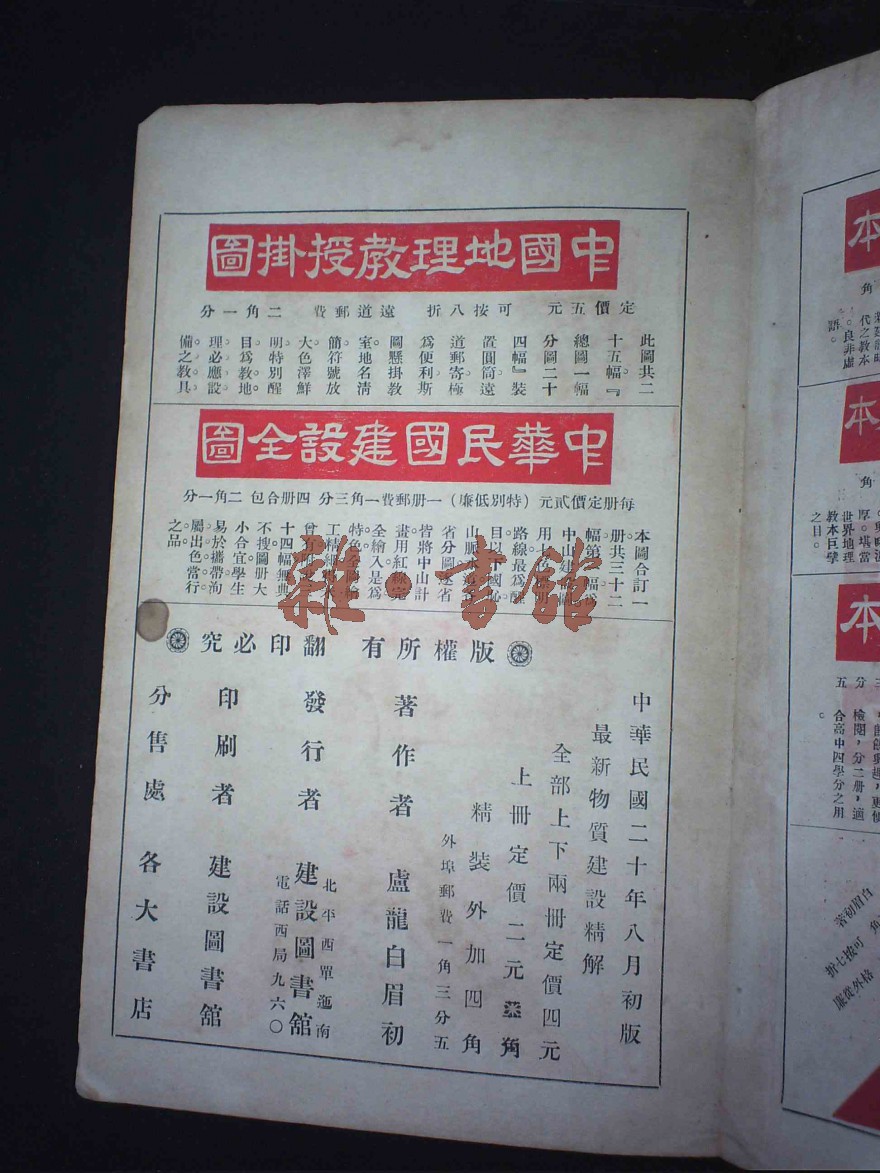 中國地理教授掛圖
定價五元 可按八折 遠道郵費 二角一分
此圖共二
十五幅。『
總圖一幅
分圖二十
四幅』裝
置圓筒遠
道郵寄極
爲便利斯
圖懸掛教
室。地名清
簡符號放
大。色澤鮮
明。特別醒
目。爲教地
理必應設
備之教具。
中華民國建設全圖
每册定價貳元（特別低廉）一册郵費一角三分 四册合包 二角一分
本圖合訂一
册。共三十二
幅。第一幅爲
中山建設
路線最爲醒
目以下國恥
山脈
省分圖
皆將中山計
畫用紅線完
全繪入是爲
特色
工精細
十四幅
不搜圖册大
小合宜學生
易於攜帶洵
屬出色當行
之品。
雜·書館
版權所有 翻印必究
中華民國二十年八月初版
最新物質建設精解
全部上下兩冊定價四元
上冊定價二元柒角
精裝外加四角
外埠郵費一角三分五
著作者 盧龍白眉初
發行者 建設圖書館
北平西單迤南
電話西局九六〇
印刷者 建設圖書館
分售處 各大書店
本
角
代之教本
。良非虛
語。
本
角
厚。堪當
世界地理
教本巨擘
之目。
本
三分五
檢閱，分二册，適
合高中四學分之用
。
白眉初著
角 可按七折
格外從廉